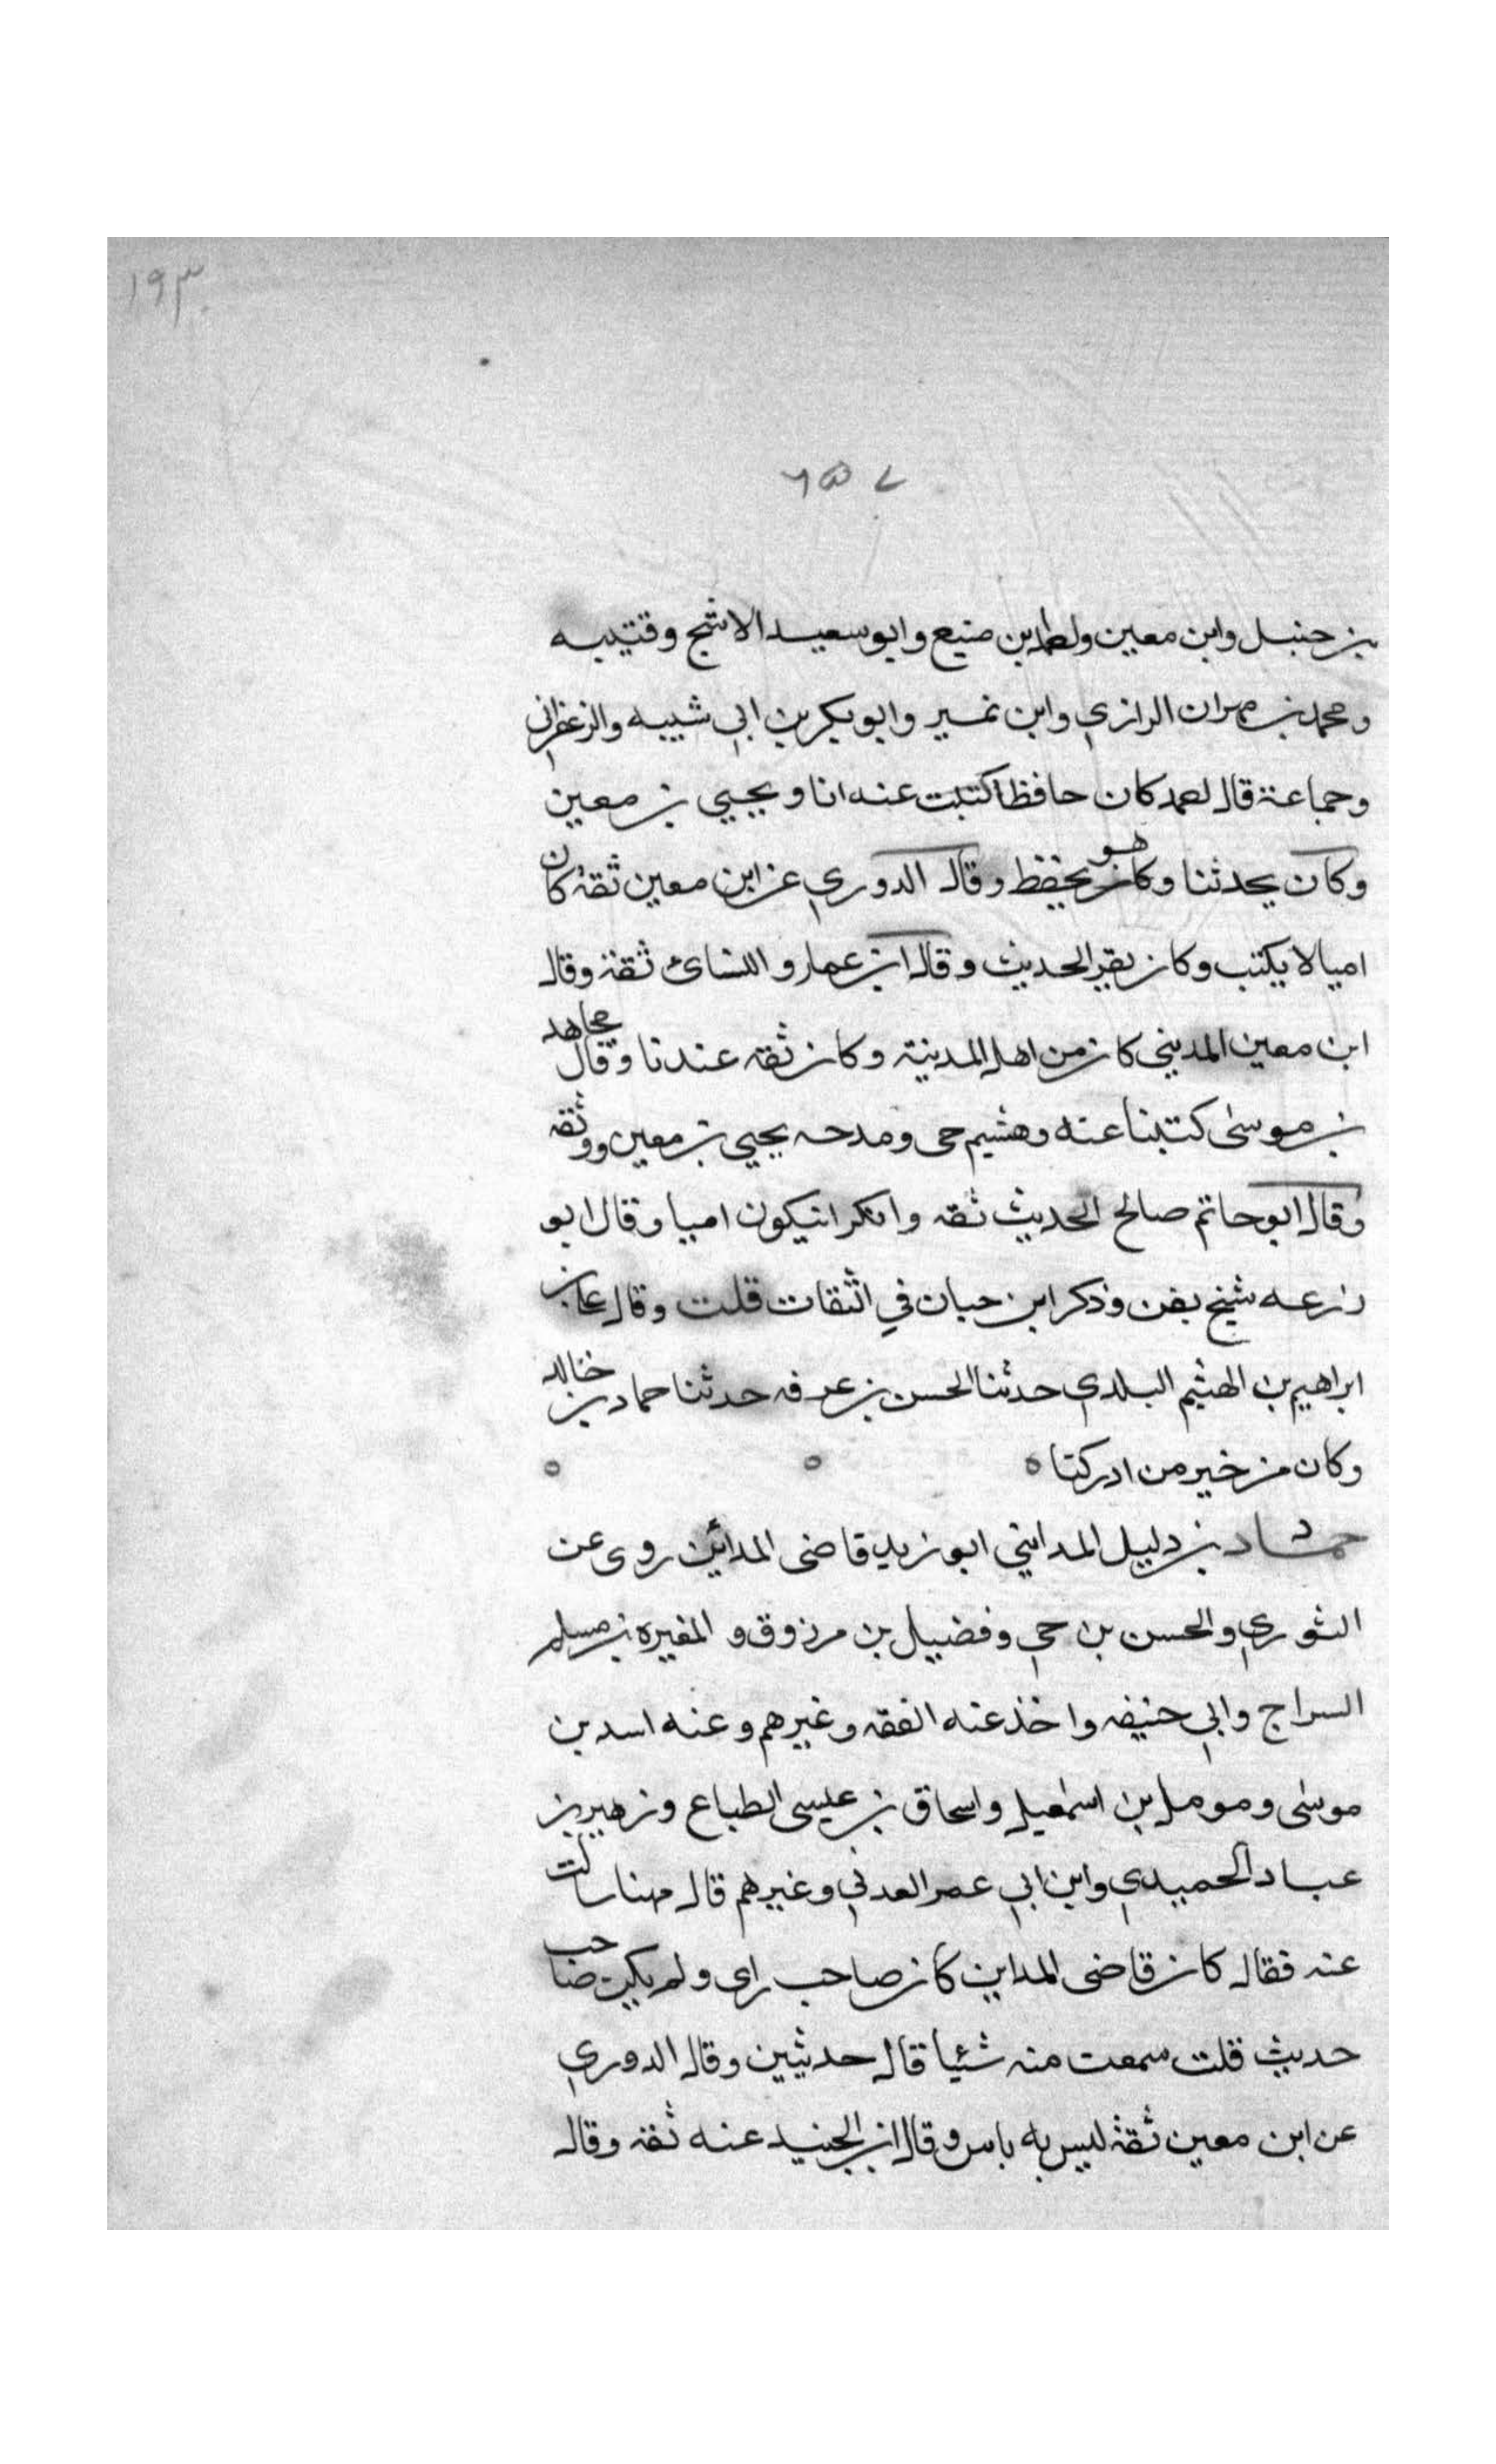 ١٩٣
بن حنبل وابن معين واحمد بن منيع وابو سعيد الاشج وقتيبه
ومحمد بن مهران الرازي وابن نمير وابو بكر بن ابي شيبه والزعفراني
وجماعة قال احمد كان حافظا كتبت عنه انا ويحيي بن معين
وكان يحدثنا وكان هو يحفظ وقال الدوري عن ابن معين ثقة كان
اميا لا يكتب وكان يقرا الحديث وقال ابن عمار والنسائ ثقة وقال
ابن معين المديني كان من اهل المدينة وكان ثقه عندنا وقال مجاهد
بن موسى كتبنا عنه وهشيم حى ومدحه يحيي بن معين ووثقه
وقال ابو حاتم صالح الحديث ثقه وانكر ان يكون اميا وقال ابو
زرعه شيخ وذكر ابن حبان في الثقات قلت وقال
ابراهيم بن الهيثم البلدي حدثنا الحسن بن عرفه حدثنا حماد بن خالد
وكان من خير من ادركنا ه ه ه
حماد بن دليل المدايني ابو زيد قاضى المدائن روى عن
الثوري والحسن بن حي وفضيل بن مرزوق والمغيره بن مسلم
السراج وابي حنيفه واخذ عنه الفقه وغيرهم وعنه اسد بن
موسى ومومل بن اسمعيل واسحاق بن عيسى الطباع وزهير بن
عباد الحميدي وابن ابي عمر العدني وغيرهم قال مهنا سالت
عنه فقال كان قاضى المداين كان صاحب راى ولم يكن صاحب
حديث قلت سمعت منه شئيا قال حديثين وقال الدوري
عن ابن معين ثقة ليس به باس وقال ابن الجنيد عنه ثقه وقال